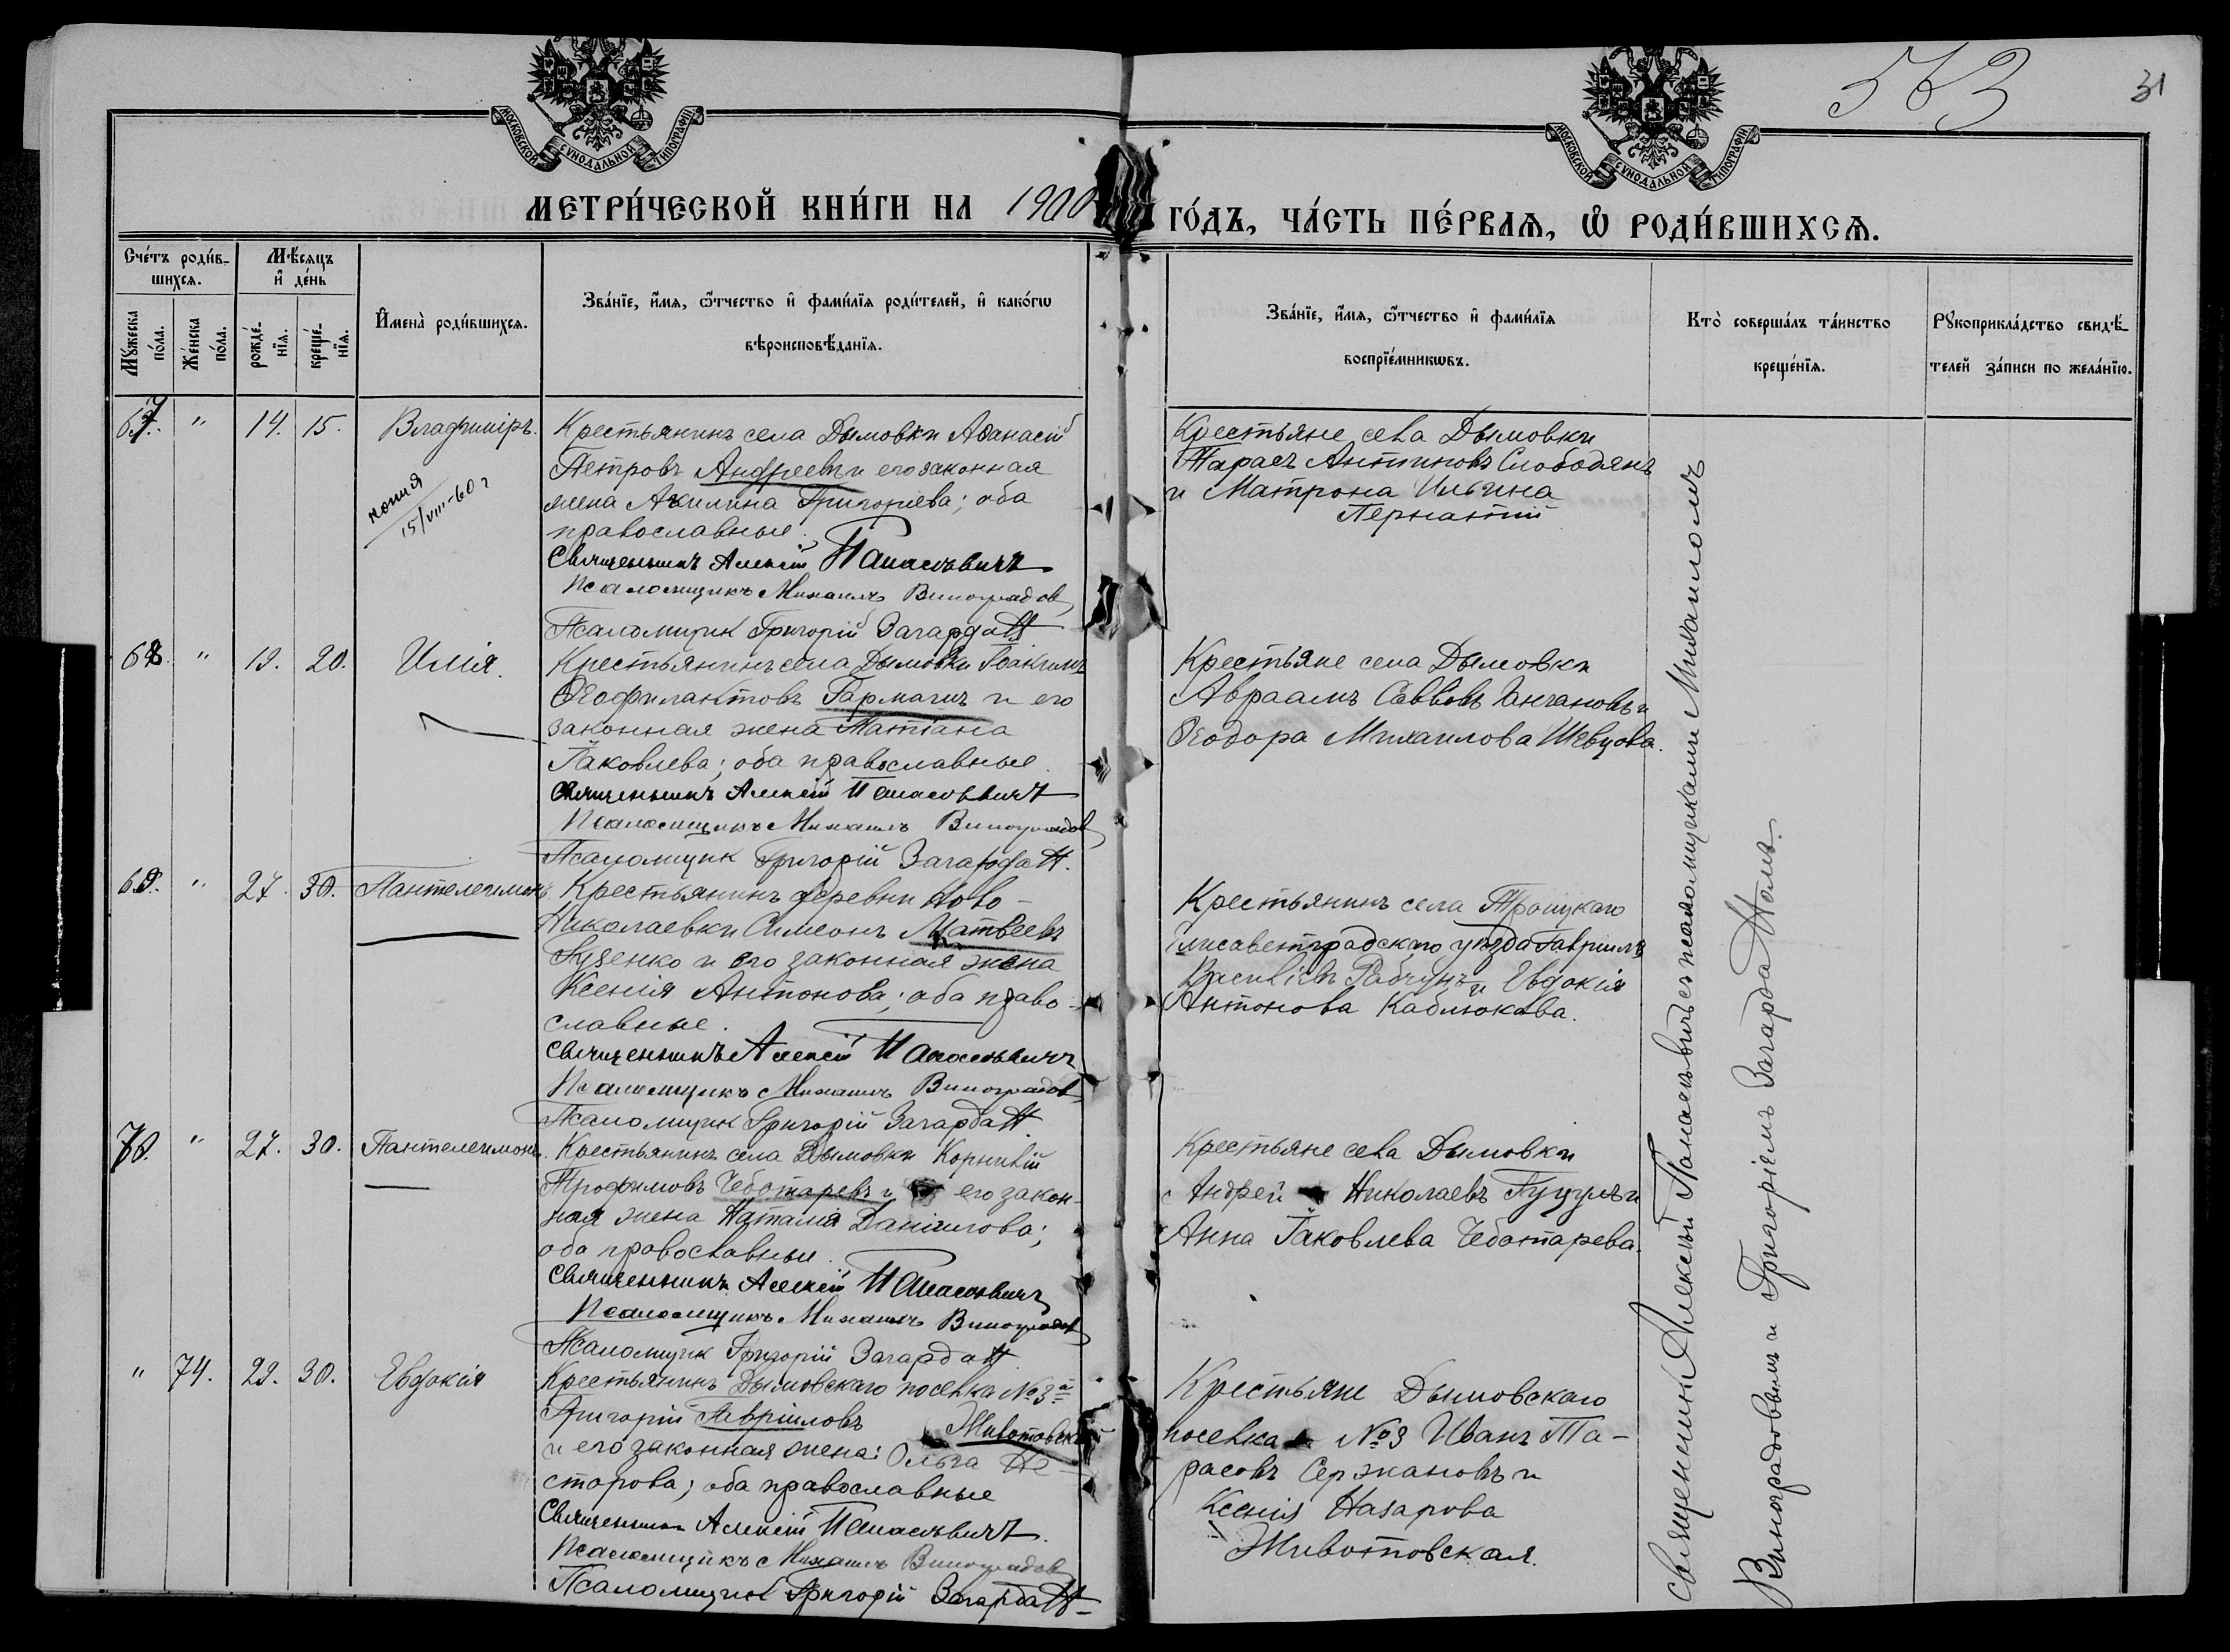 563
31
МОСКОВСКОЙ СѴНОДАЛЬНОЙ ТИПОГРАФІИ
МОСКОВСКОЙ СѴНОДАЛЬНОЙ ТИПОГРАФІИ
МЕТРИ́ЧЕСКОЙ КНИ́ГИ НА 1900 ГО́ДЪ, ЧА́СТЬ ПЕ́РВАѦ, Ѡ РОДИ́ВШИХСѦ.
Сче́тъ роди́в-
шихсѧ.
Мѣ́сѧцъ
и҆ де́нь
Мꙋ́жеска
по́ла.
Же́нска
по́ла.
рожде́-
нїѧ.
креще́-
нїѧ.
И҆мена̀ роди́вшихсѧ.
Зва́нїе, и҆́мѧ, ѻ҆́тчество и҆ фами́лїѧ роди́телей, и҆ како́гѡ
вѣроисповѣ́данїѧ.
Зва́нїе, и҆́мѧ, ѻ҆́тчество и҆ фами́лїѧ
воспрїе́мникѡвъ.
Кто̀ соверша́лъ та́инство
креще́нїѧ.
Рꙋкоприкла́дство свидѣ́-
телей за́писи по жела́нїю.
67. " 14. 15. Владиміръ.
копия
15/VIII-60 г
Крестьянинъ села Дымовки Аѳанасій
Петровъ Андреевъ и его законная
жена Акилина Григорiева; оба
православные.
Священникъ Алексій Панасевичъ
Псаломщикъ Михаилъ Виноградов
Псаломщик Григорій Загарда
Крестьяне села Дымовки
Тарасъ Антиповъ Слободянъ
и Матрона Ильина
68. " 19. 20. Илія.
Крестьянинъ села Дымовки Іоакимъ
Ѳеофилактовъ Гармашъ и его
законная жена Татіана
Іаковлева; оба православные.
Священникъ Алексій Панасевичъ
Псаломщикъ Михаилъ Виноградов
Псаломщик Григорій Загарда
Крестьяне села Дымовки
Авраамъ Савовъ и
Ѳеодора Михаилова Шевцова.
69. " 27. 30. Пантелеимонъ.
Крестьянинъ деревни Ново-
Николаевки Симеонъ Матвеевъ
и его законная жена
Ксенія Антонова; оба право-
славные.
Священникъ Алексій Панасевичъ
Псаломщикъ Михаилъ Виноградов
Псаломщик Григорій Загарда
Крестьянинъ села Троицкаго
Елисаветградскаго уѣзда Гавріилъ
Васильевъ Рябчунъ и Евдокія
Антонова Каблюкова.
70. " 27. 30. Пантелеимонъ.
Крестьянинъ села Дымовки Корнилій
Трофимовъ Чеботаревъ и его закон-
ная жена Наталія Даніилова;
оба православные.
Священникъ Алексій Панасевичъ
Псаломщикъ Михаилъ Виноградов
Псаломщик Григорій Загарда
Крестьяне села Дымовки
Андрей Николаевъ Гуцулъ и
Анна Іаковлева Чеботарева.
" 74. 29. 30. Евдокія
Крестьянинъ Дымовскаго поселка №3й
Григорій Гавріиловъ Животовскій
и его законная жена: Ольга Не-
сторова; оба православные
Священникъ Алексій Панасевичъ.
Псаломщикъ Михаилъ Виноградов
Псаломщик Григорій Загарда
Крестьяне Дымовскаго
поселка №3 Иванъ Та-
расовъ Сержановъ и
Ксенія Назарова
Животовская.
Священникъ Алексѣй Панасевичъ съ псаломщиками Михаиломъ
Виноградовымъ и Григоріемъ Загарда